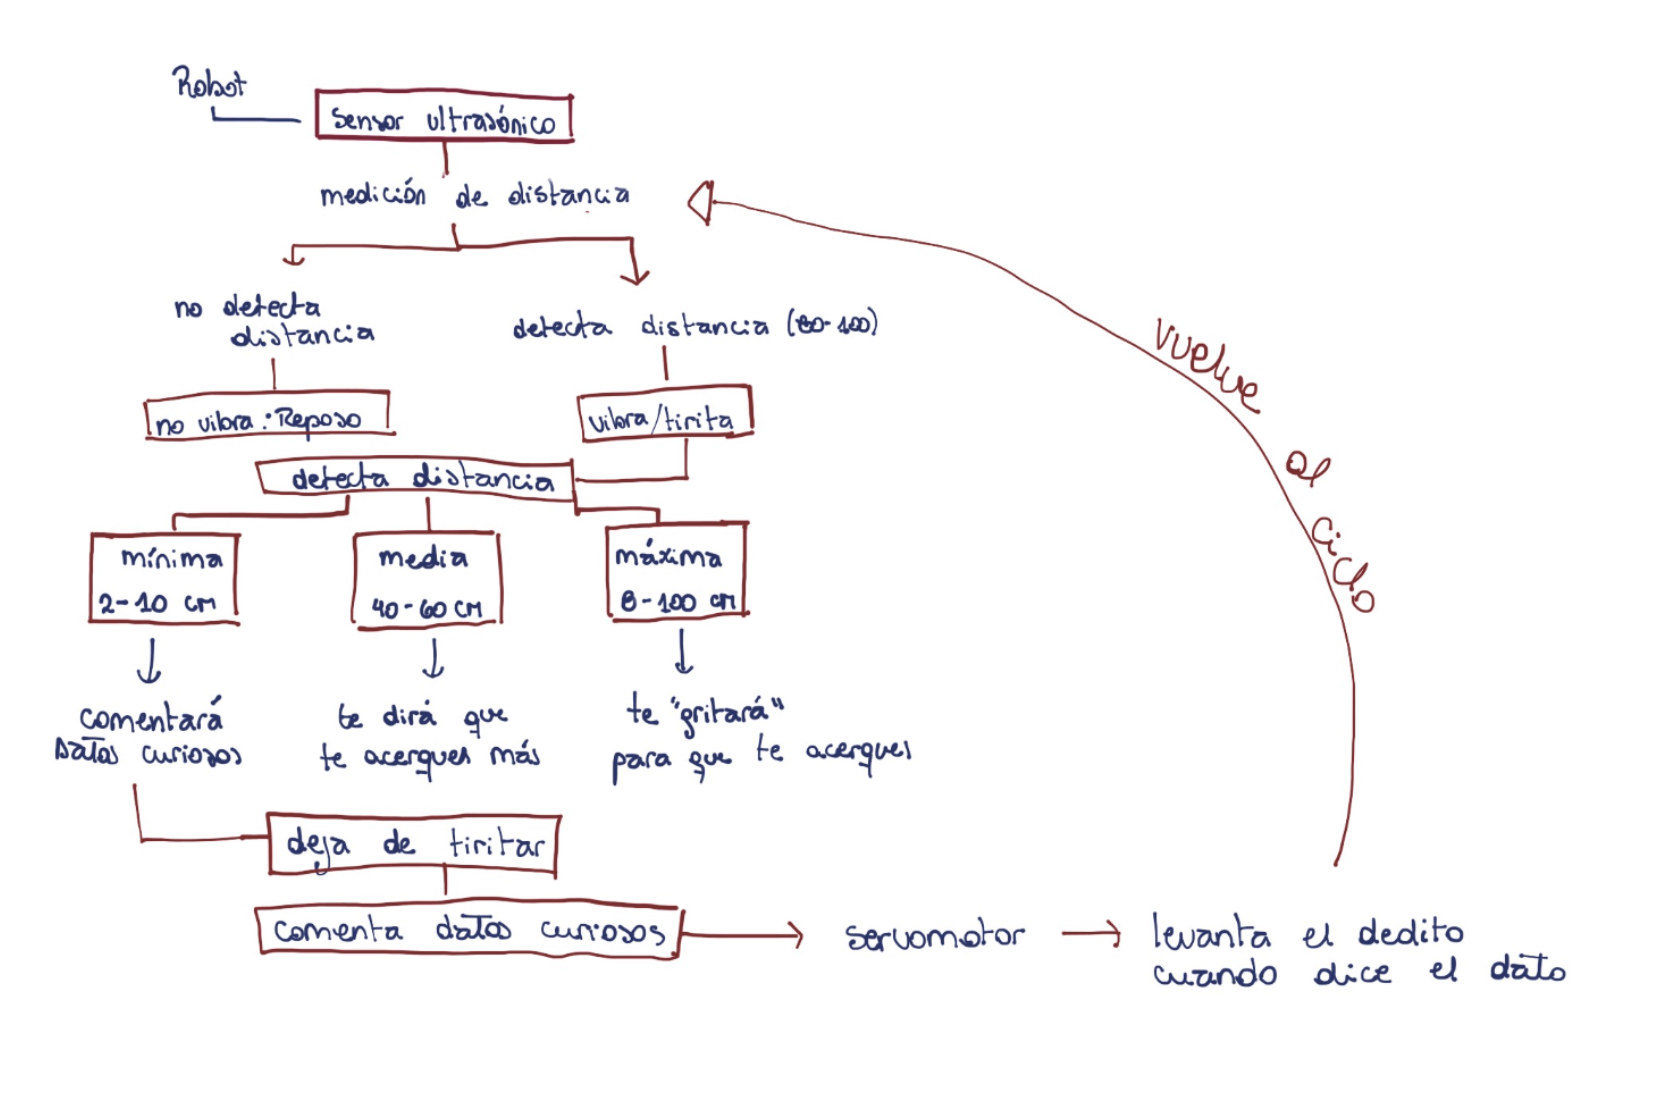 Robot
Sensor ultrasónico
medición de distancia
no detecta
distancia
detecta distancia (80-100)
no vibra: Reposo
vibra/tirita
detecta distancia
mínima
2-10 cm
media
40-60 cm
máxima
8-100 cm
comentará
Datos curiosos
te dirá que
te acerques más
te "gritará"
para que te acerques
deja de tiritar
comenta datos curiosos
servomotor
levanta el dedito
cuando dice el dato
vuelve al ciclo